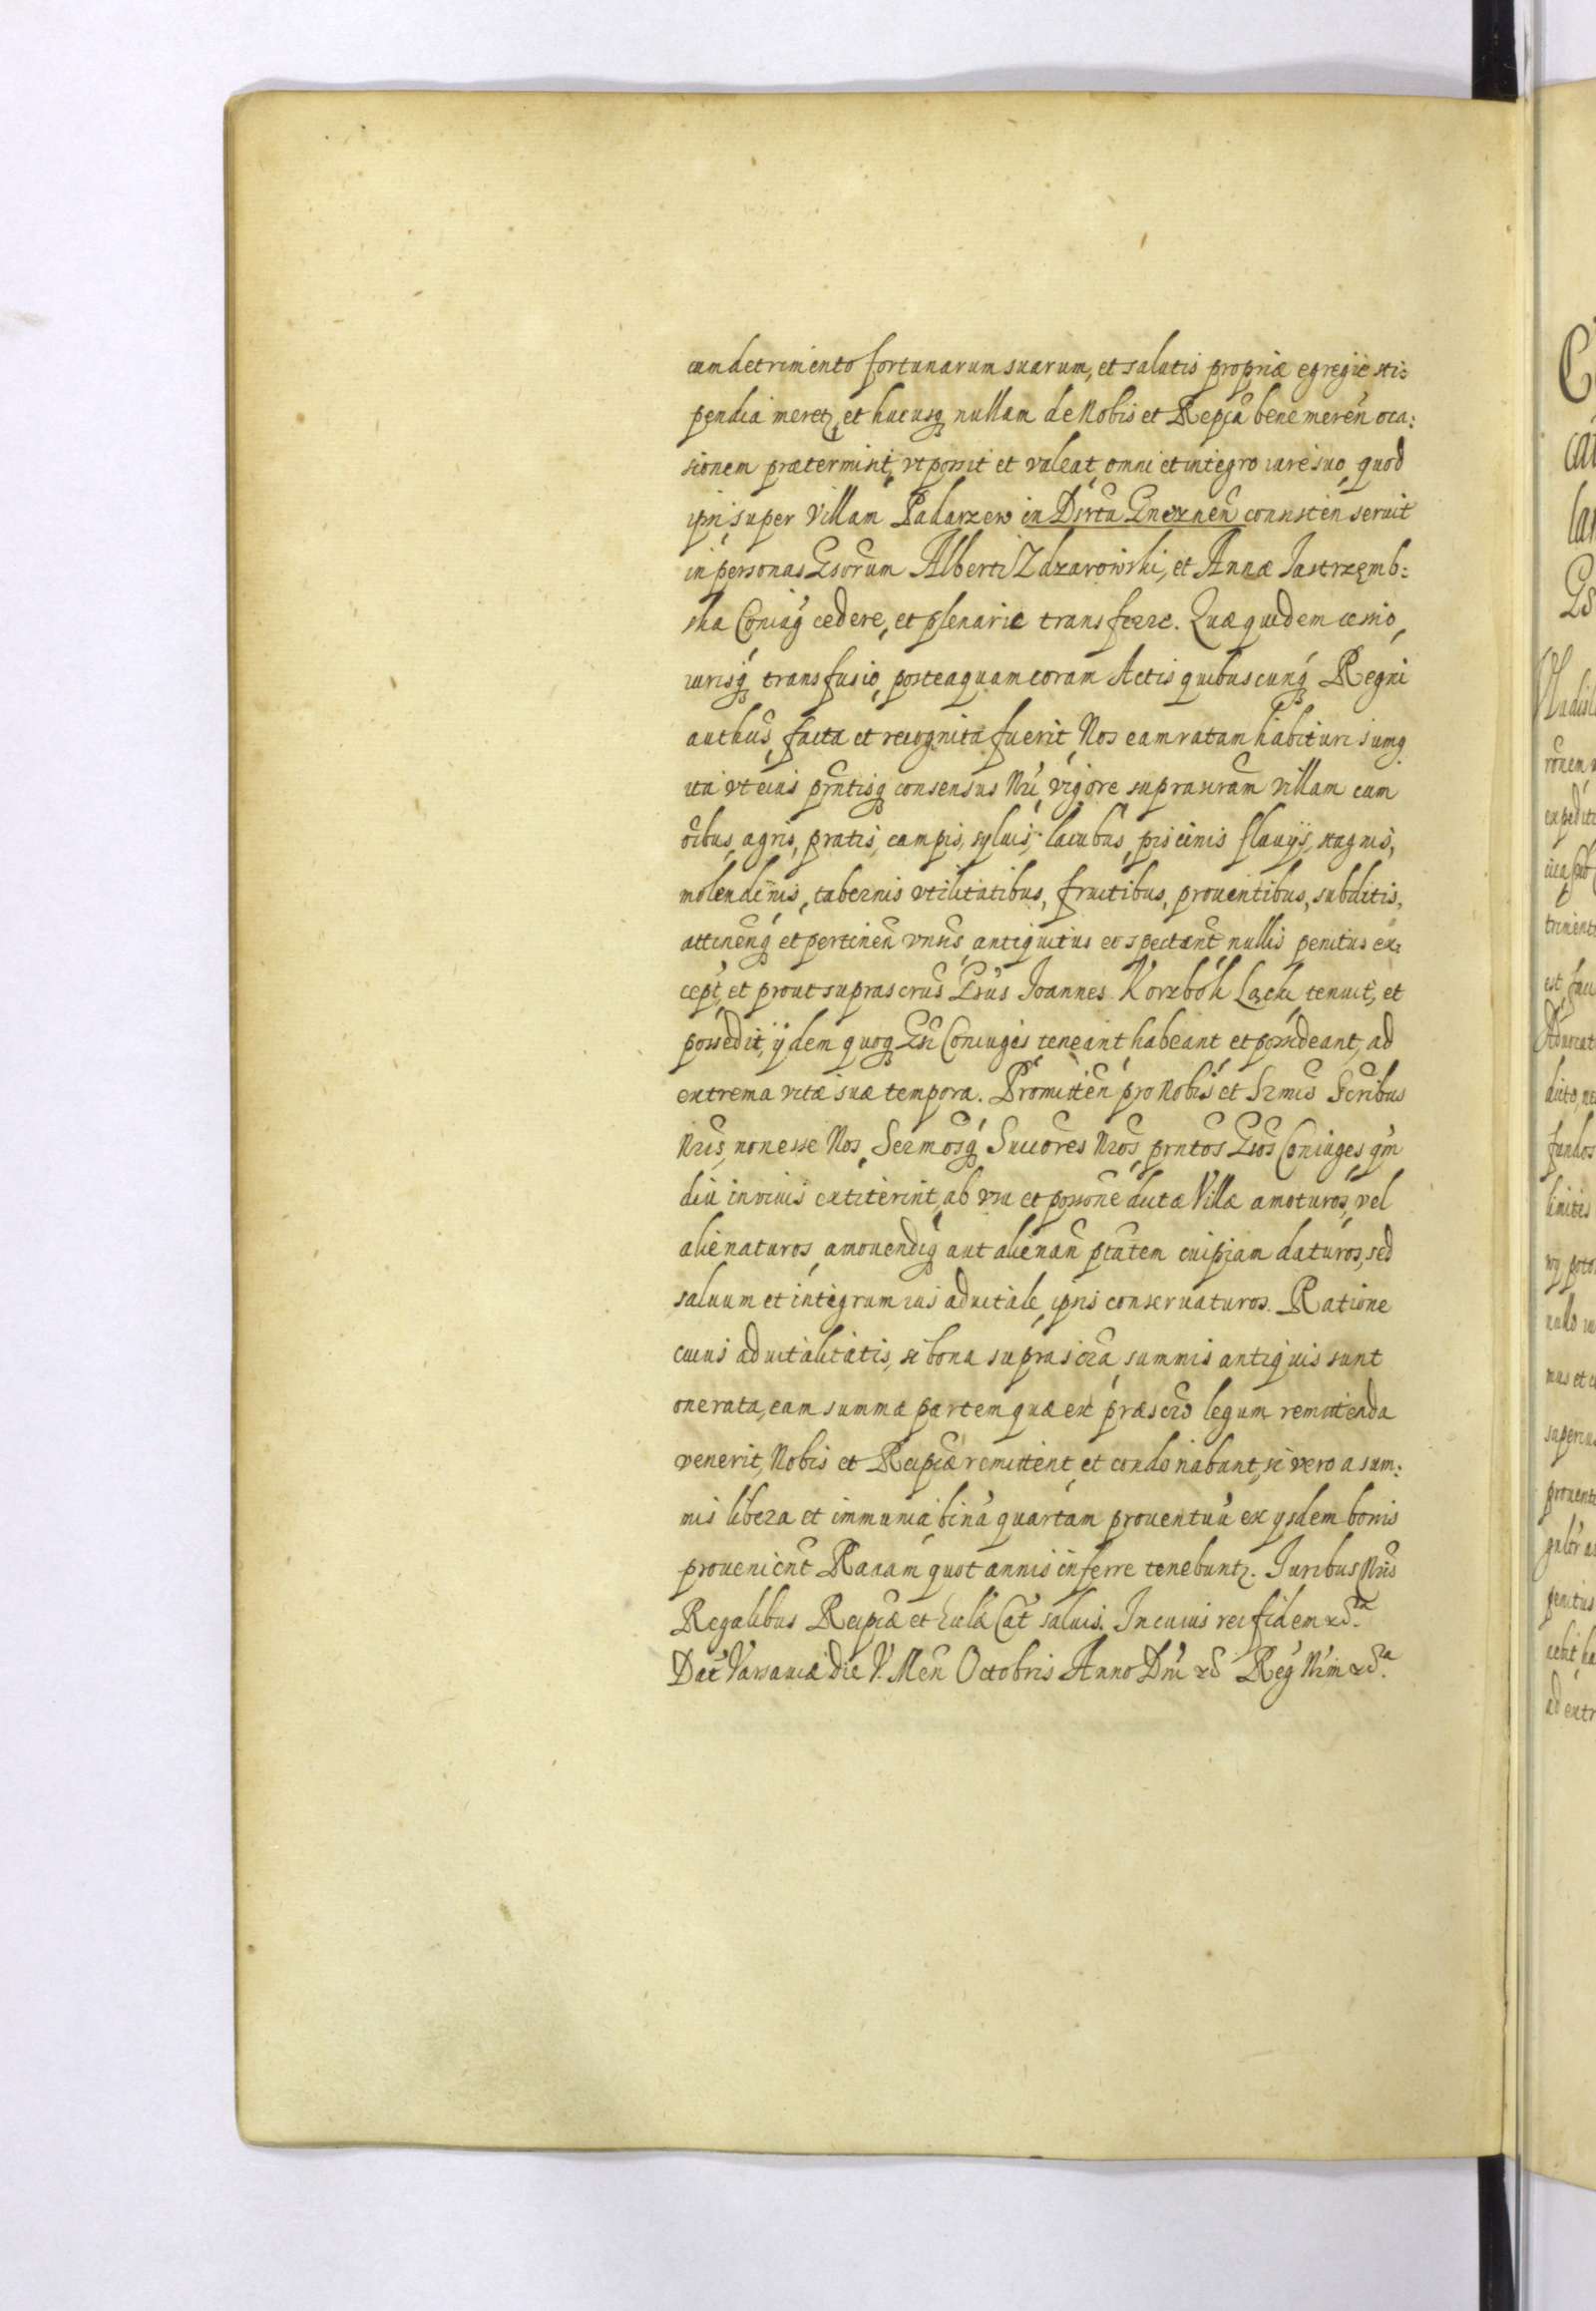 cum detrimento fortunarum suarum, et salutis propriæ egregiè sti:
pendia meretꝫ, et hucusq nullam de Nobis et Repcā bene meren̄ oca:
sionem prætermisit, vt possit et valeat omni et integro iure suo, quod
ipsi super Villam Padarzew in Dsrtu Gneznen̄ consisten̄ seruit
in personas Gsorum Alberti Zdzarowski, et Annæ Jastrzęmb:
ska Coniug̃ cedere, et plenarie transferre. Quæ quidem cessio,
iurisq́ transfusio, posteaquam coram Actis quibuscunq́ Regni
authcis, facta et recognita fuerit, Nos eam ratam habituri sumq
ita vt eius prntisq consensus Nri vigore suprascram villam cum
oibus, agris, pratis, campis, syluis, lacubus, piscinis fluuijs, stagnis,
molendinis, tabernis vtilitatibus, fructibus, prouentibus, subditis,
attinenq́ et pertinen̄ vnsis antiquitus eo spectant nullis penitus ex:
cept, et prout suprascrus Gsus Joannes Korzbok Łącki tenuit, et
possedit, ijdem quoq Gsi Coniuges teneant habeant et possideant, ad
extrema vitæ suæ tempora. Promitten̄ pro Nobis et Srmis Scribus
Nris, non esse Nos, Sermosq́ Succores Nros, prntos Gsos Coniuges qm̃
diu in viuis extiterint, ab vsu et possone dictæ Villæ amoturos, vel
alienaturos, amouendiq aut alienan̄ ptatem cuipiam daturos, sed
saluum et integrum ius aduitale ipsis conseruaturos. Ratione
cuius aduitalitatis, si bona suprascra summis antiquis sunt
onerata, eam summæ partem quæ ex præscro legum remittenda
venerit, Nobis et Reipcæ remittent et condonabunt, si vero a sum:
mis libera et immunia bina quartam prouentuū ex ijsdem bonis
prouenient Rauam quot annis inferre tenebuntꝫ. Juribus Nris
Regalibus Reipcæ et Ecclæ Cat saluis. In cuius rei fidem &c̄ta.
Dat Varsauiæ die V. Men̄ Octobris Anno Dni &c̄ Reg̃ Nrm &c̄a.